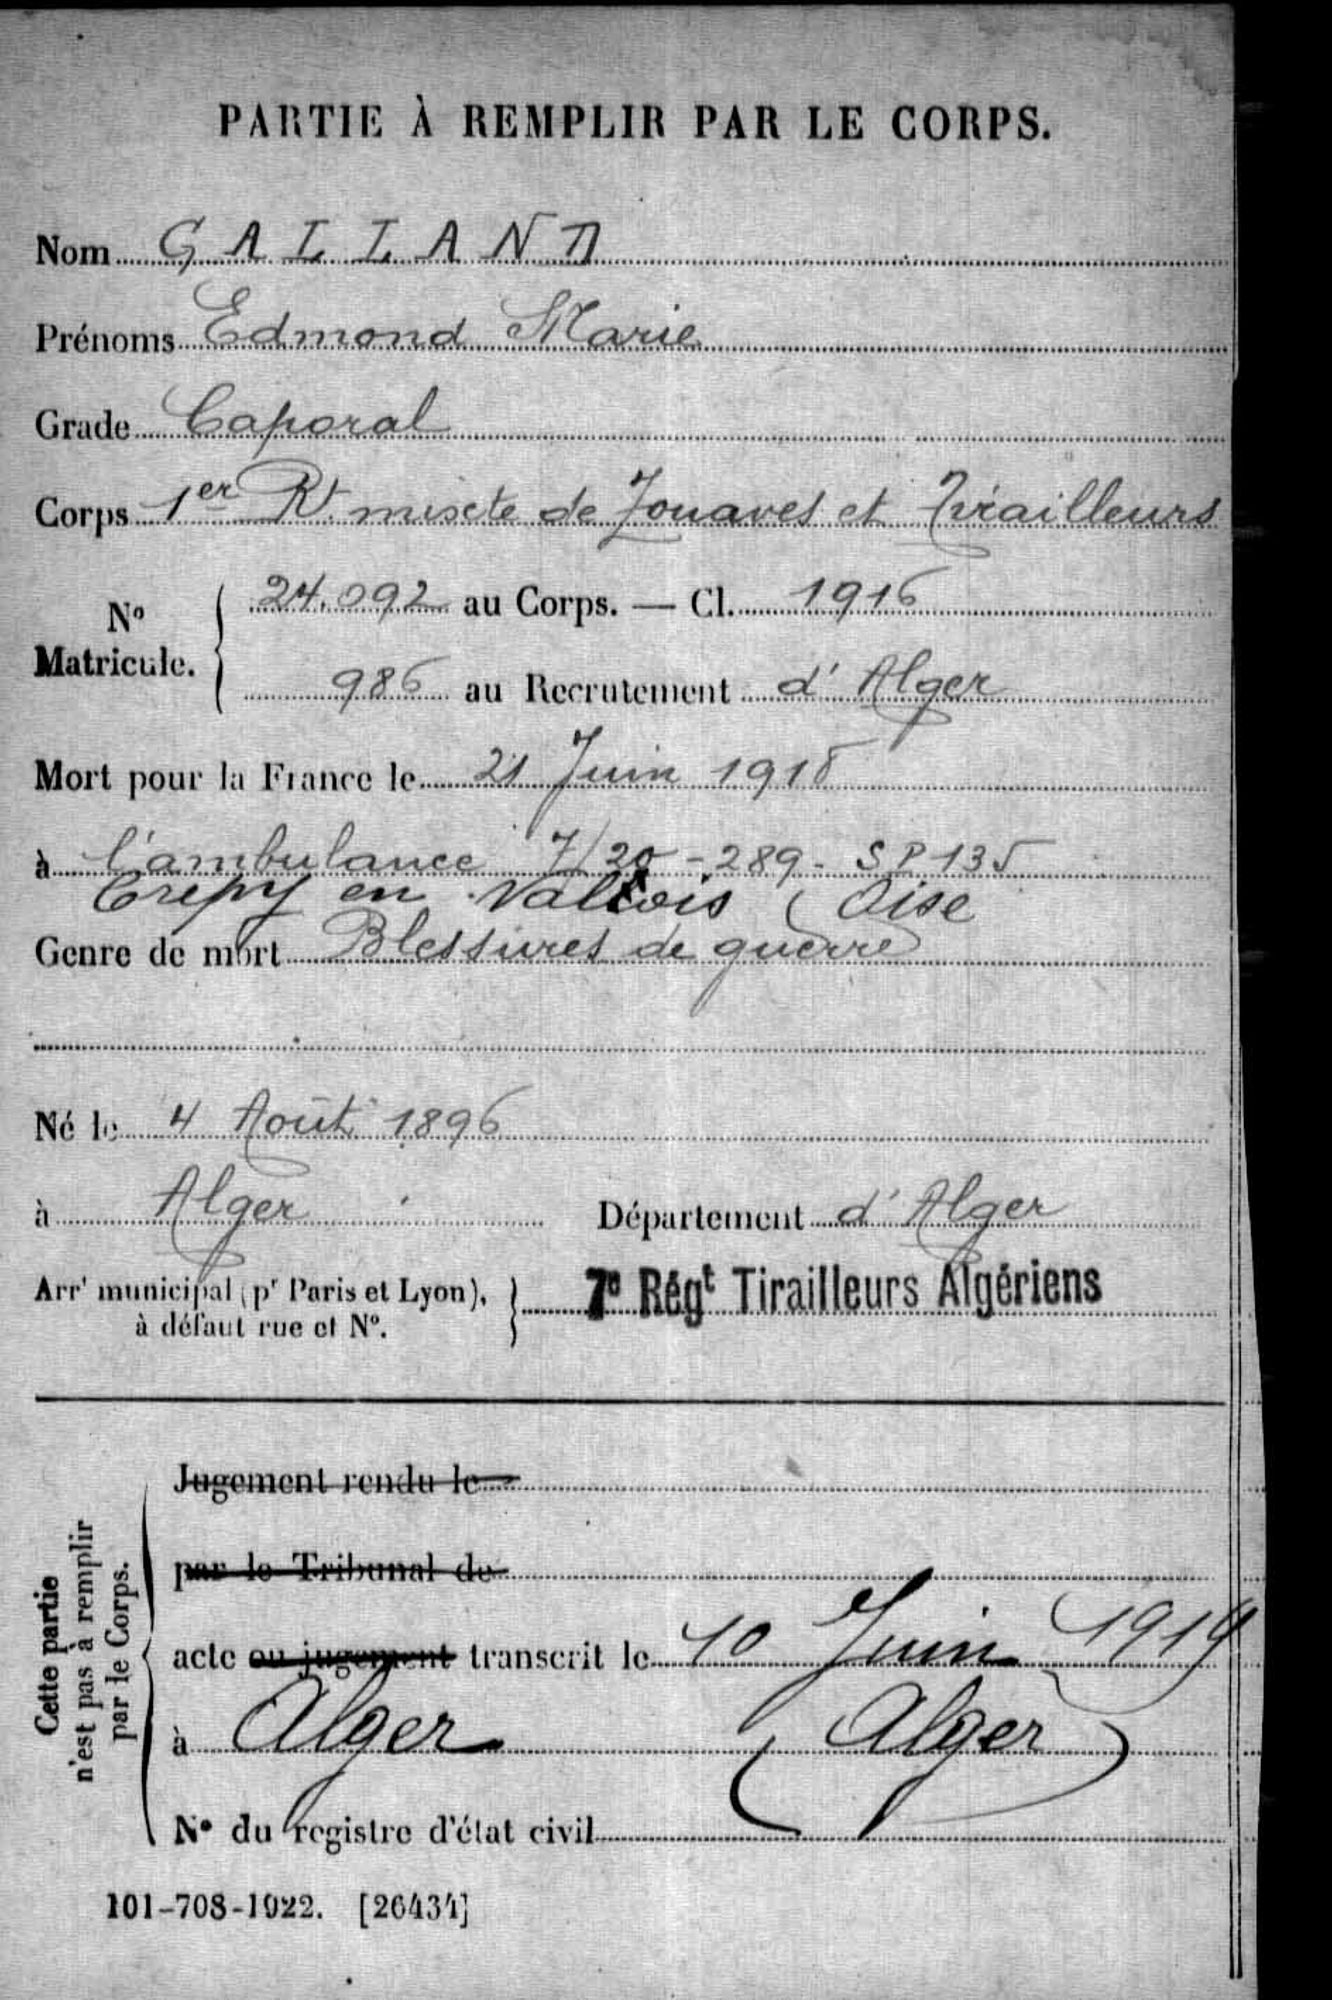 PARTIE À REMPLIR PAR LE CORPS.
Nom GALLAND
Prénoms Edmond Marie
Grade Caporal
Corps 1er Rt mixte de Zouaves et Tirailleurs
No Matricule. { 24.092 au Corps. — Cl. 1916
986 au Recrutement d'Alger
Mort pour la France le 21 Juin 1918
à l'ambulance 7/20 - 289 - SP 135
Crepy en Valois ( Oise
Genre de mort Blessures de guerre
Né le 4 Août 1896
à Alger Département d'Alger
Arrt municipal (pr Paris et Lyon), à défaut rue et No. } 7e Régt Tirailleurs Algériens
Cette partie n'est pas à remplir par le Corps.
Jugement rendu le
par le Tribunal de
acte ou jugement transcrit le 10 Juin 1919
à Alger (Alger)
No du registre d'état civil
101-708-1922. [26434]